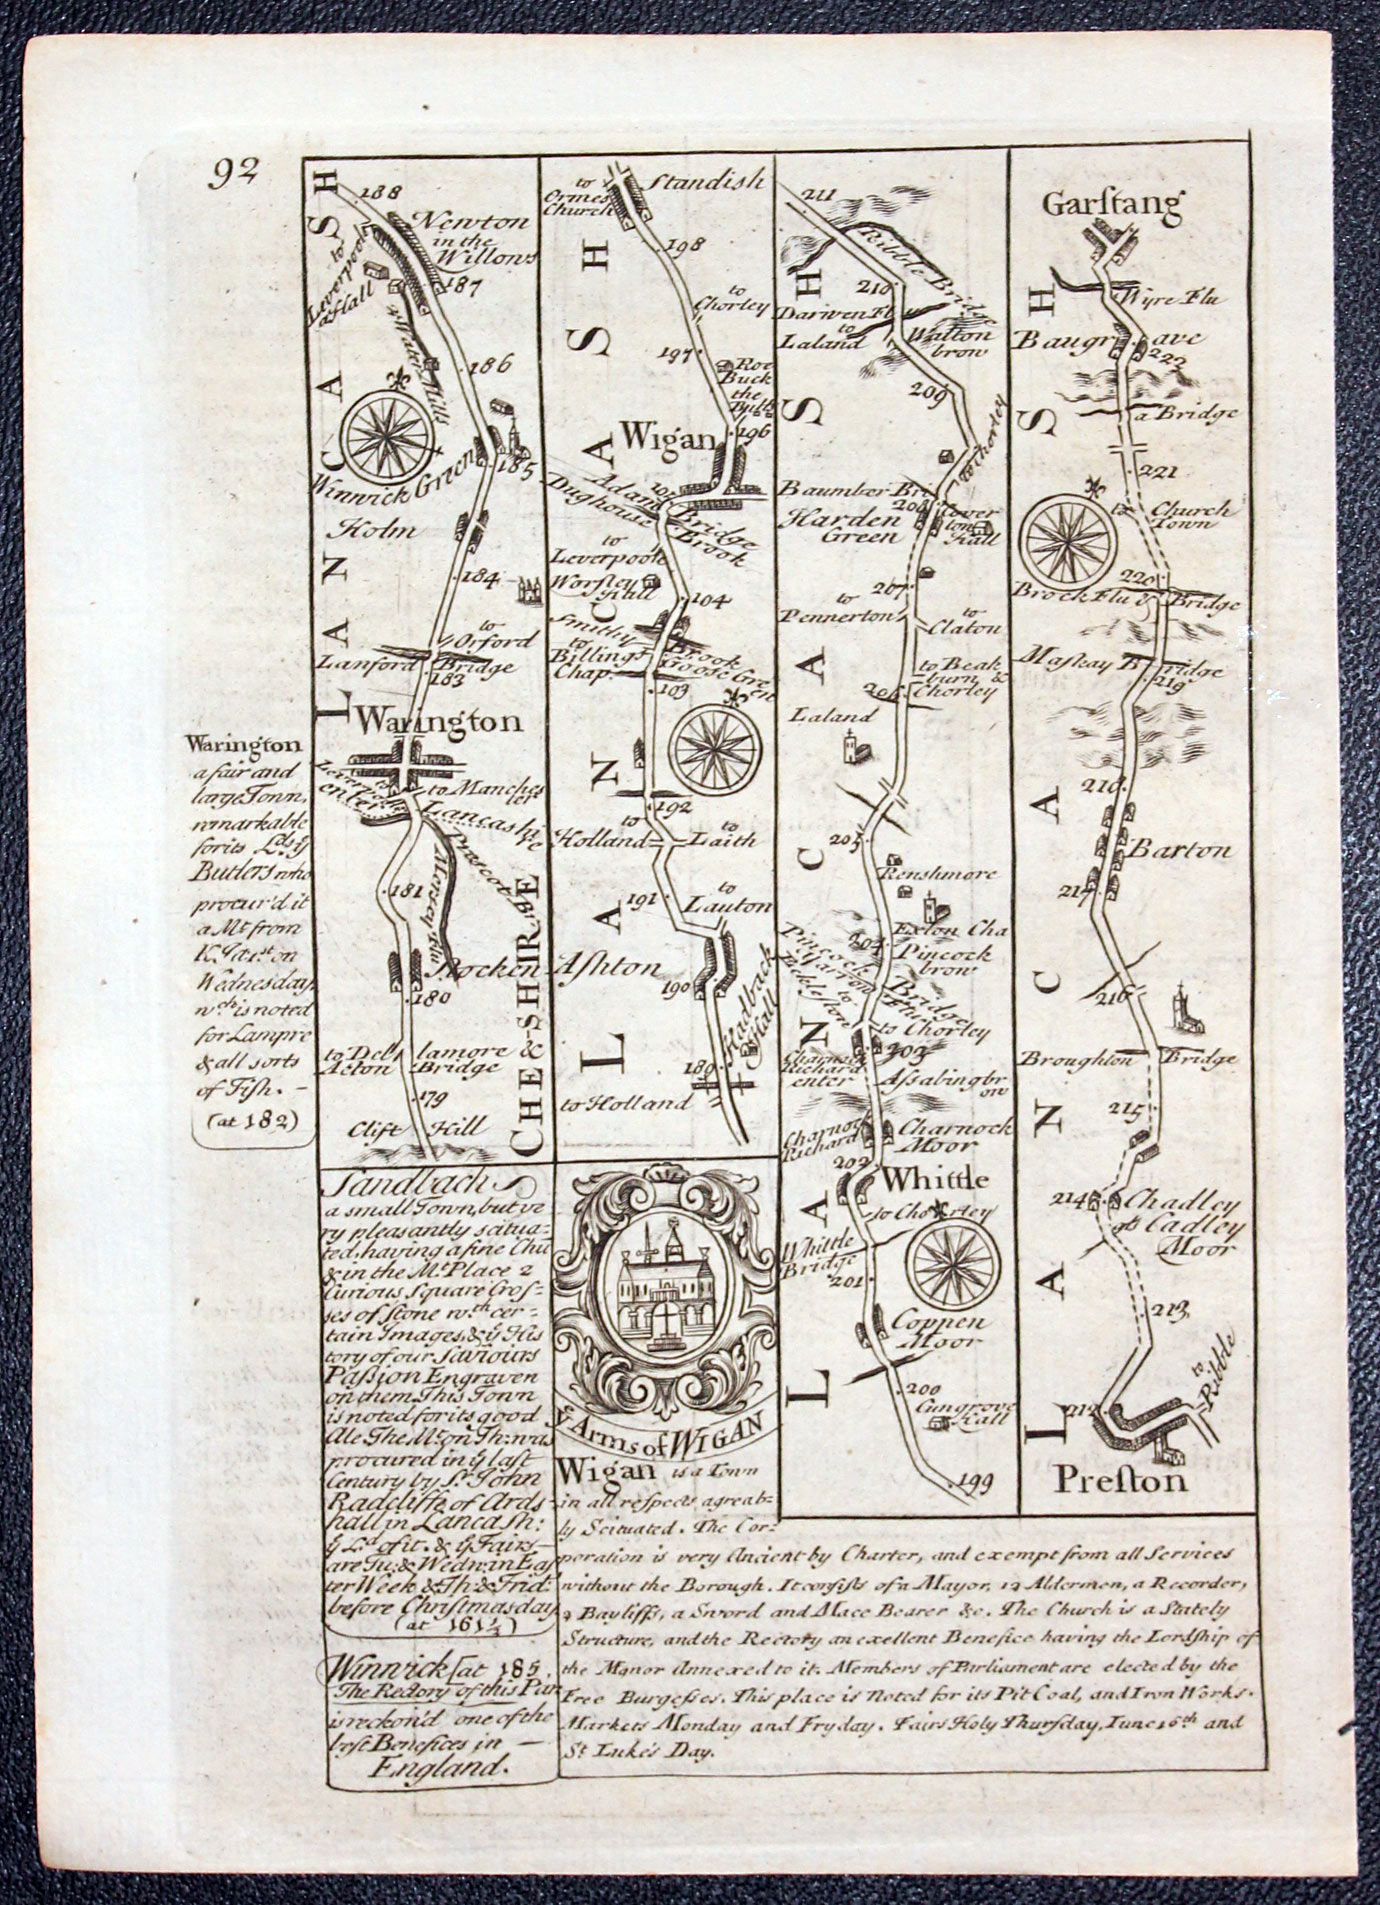 92
188
Newton
in the
Willows
187
to
Leverpoole
a Hall
4 Water Mills
186
185
Winwick Green
Holm
184
to
Orford
Lanford Bridge
183
LANCASH
Warington
to Manches
ter
Lancashi
re
Prescot Br
Mersey Flu
181
Stocken
180
to Del
lamore &
Acton
Bridge
179
Clift Hill
CHESHIRE
Warington
a fair and
large Town,
remarkable
for its Lds ye
Butlers who
procur'd it
a Mt. from
K. Ed. 1st on
Wednesday,
wch. is noted
for Lampre
& all sorts
of Fish. -
(at 182)
Sandbach
a small Town, but ve
ry pleasantly scitua=
ted, having a fine Chu
& in the Mt. Place 2
Curious Square Cros=
ses of Stone wth. cer=
tain Images, & ye His
tory of our Saviours
Passion Engraven
on them. This Town
is noted for its good
Ale The Mt. on Th: was
procured in ye last
Century by Sr. John
Radcliffe of Ards
hall in Lancash:
ye Ld. of it. & ye Fairs
are Tu: & Wedn: in Eas
ter Week & Th: & Frid:
before Christmas day
(at 161½)
Winwick [at 185.
The Rectory of this Par
is reckon'd one of the
best Benefices in —
England.
Standish
to
Ormes
Church
198
to
Chorley
197
Roe
Buck
the
Butts
196
Wigan
Adam Bridge
Dughouse Brook
to
Leverpoole
Worsley
Hall
104
Smithy Brook
to
Billings
Chap.
Goose Gre
en
103
192
to
Holland
to
Laith
191
to
Lauton
Ashton
190
Bradback
Hall
189
to Holland
LANCASH
Ye Arms of WIGAN
Wigan is a Town
in all respects agreab=
ly Scituated. The Cor=
poration is very Ancient by Charter, and exempt from all Services
without the Borough. It consists of a Mayor, 12 Aldermen, a Recorder,
2 Bayliffs, a Sword and Mace Bearer &c. The Church is a Stately
Structure, and the Rectory an exellent Benefice having the Lordship of
the Manor Annexed to it. Members of Parliament are elected by the
Free Burgesses. This place is Noted for its Pit Coal, and Iron Works.
Markets Monday and Fryday. Fairs Holy Thursday, June 16th and
St. Luke's Day.
211
Ribble Bridge
210
Dariwen Flu
to
Laland
Walton
brow
209
to Chorley
Baumber Bri
208
Harden
Green
Cower
ton
Hall
207
to
Pennerton
to
Claton
to Beak
burn &
Chorley
206
Laland
205
Renshmore
Exton Cha
204
Pincock
brow
Pincock Bridge
Yarrow Flu
to
Eckleston
to Chorley
203
Charnock
Richard
enter
Assabingbr
ow
Charnock
Richard
Charnock
Moor
202
Whittle
to Chorley
Whittle
Bridge
201
Coppen
Moor
200
Gungrove
Hall
199
LANCASH
Garstang
Wyre Flu
Baugrave
222
a Bridge
221
to
Church
Town
220
Brock Flu & Bridge
Maskay Bridge
219
218
Barton
217
216
Broughton Bridge
215
214
Chadley
or Cadley
Moor
213
to
Ribble
212
Preston
LANCASH